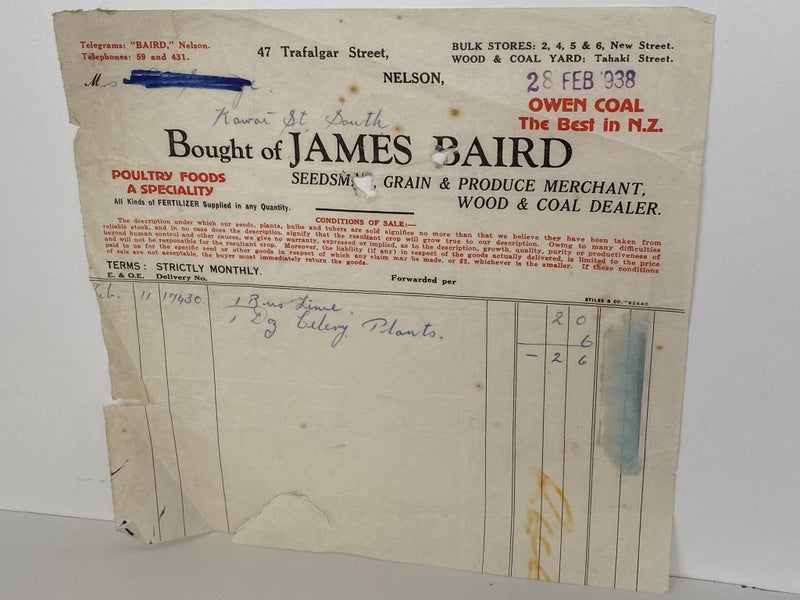 Telegrams: "BAIRD," Nelson.
Telephones: 59 and 431.
47 Trafalgar Street,
BULK STORES: 2, 4, 5 & 6, New Street.
WOOD & COAL YARD: Tahaki Street.
NELSON,
28 FEB 1938
OWEN COAL
The Best in N.Z.
Kawai St South
Bought of JAMES BAIRD
POULTRY FOODS
A SPECIALITY
All Kinds of FERTILIZER Supplied in any Quantity.
SEEDSM, GRAIN & PRODUCE MERCHANT,
WOOD & COAL DEALER.
CONDITIONS OF SALE:—
The description under which our seeds, plants, bulbs and tubers are sold signifies no more than that we believe they have been taken from
reliable stock, and in no case does the description, signify that the resultant crop will grow true to our description. Owing to many difficulties
beyond human control and other causes, we give no warranty, expressed or implied, as to the description, growth, quality, purity or productiveness of
and will not be responsible for the resultant crop. Moreover, the liability (if any) in respect of the goods actually delivered, is limited to the price
paid to us for the specific seed or other goods in respect of which any claim may be made, or £2, whichever is the smaller. If these conditions
of sale are not acceptable, the buyer must immediately return the goods.
TERMS: STRICTLY MONTHLY.
E. & O.E. Delivery No.
Forwarded per
STILES & CO.—62440
eb. 11 17430. 1 Bus Lime. 2 0
1 Dz Celery Plants. 6
- 2 6